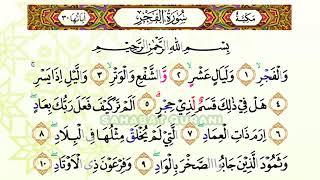 مكية سورة الفجر آياتها ٣٠
بسم الله الرحمن الرحيم
والفجر ١ وليال عشر ٢ والشفع والوتر ٣ والليل إذا يسر
٤ هل في ذلك قسم لذي حجر ٥ ألم تر كيف فعل ربك بعاد
SAHABAT QURANI
٦ إرم ذات العماد ٧ التي لم يخلق مثلها في البلاد ٨
وثمود الذين جابوا الصخر بالواد ٩ وفرعون ذي الأوتاد ١٠